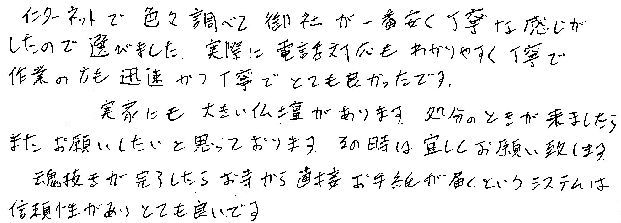 インターネットで色々調べて御社が一番安く丁寧な感じが
したので選びました。実際に電話対応もわかりやすく丁寧で
作業の方も迅速かつ丁寧でとても良かったです。
実家にも大きい仏壇があります 処分のときが来ましたら
またお願いしたいと思っております その時は宜しくお願い致します
魂抜きが完了したらお寺から直接お手紙が届くというシステムは
信頼性がありとても良いです